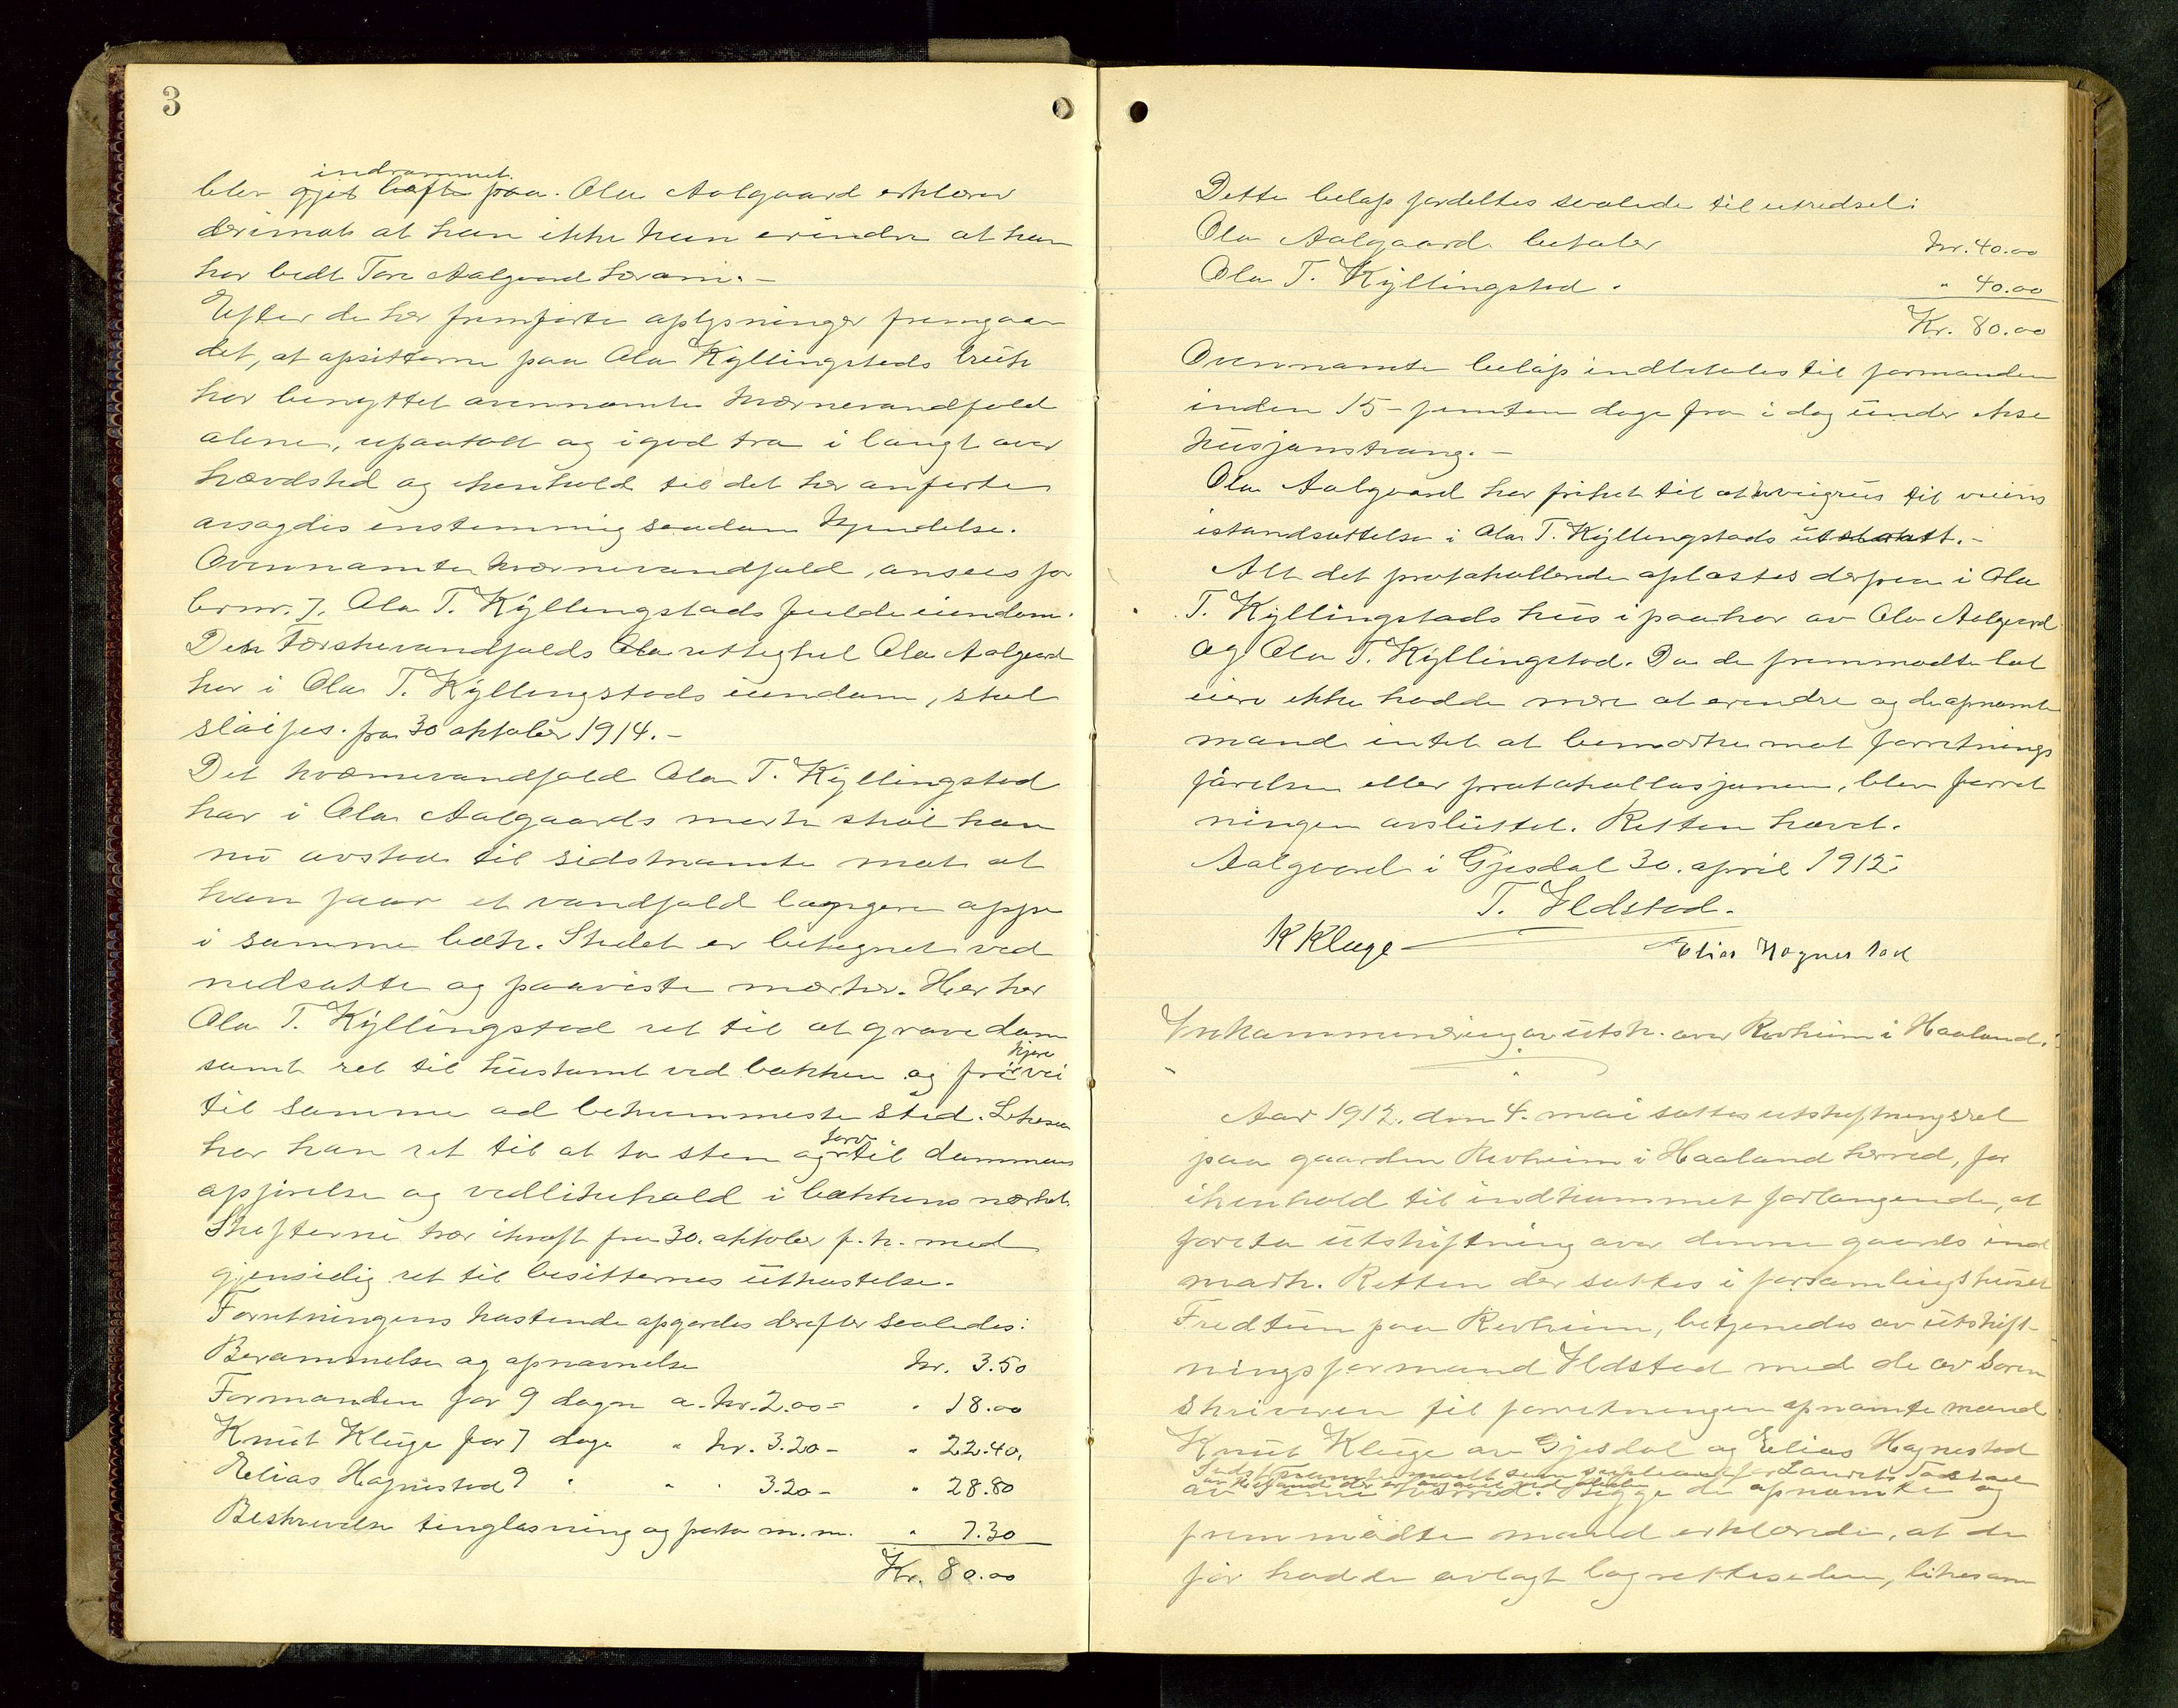 3
indrømmet.
blev gjet løfte paa. Ola Aalgaard erklærer
derimot at han ikke kan erindre at han
har bedt Tore Aalgaard herom. -
Efter de her fremførte oplysninger fremgaar
det, at opsitterne paa Ola Kyllingstads bruk
har benyttet ovennævnte kværnevandfald
alene, upaatalt og i god tro i langt over
hævdstid og ihenhold til det her anførte
avsagdes enstemmig saadan kjendelse.
Ovennævnte kværnevandfald, ansees for
brnr. 7. Ola T. Kyllingstads fulde eiendom.
Den Tørskevandfalds rettighet Ola Aalgaard
har i Ola T. Kyllingstads eiendom, skal
sløifes. fra 30 oktober 1914. -
Det kværnevandfald Ola T. Kyllingstad
har i Ola Aalgaards mark skal han
nu avstaa til sidstnævnte mot at
han faar et vandfald længere oppe
i samme bæk. Stedet er betegnet ved
nedsatte og paaviste merker. Her har
Ola T. Kyllingstad ret til at grave dam
kjøre
samt ret til hustomt ved bækken og fri vei
til samme ad bekvemmeste sted. Likesaa
torv
har han ret til at ta sten og til dammens
opførelse og vedlikehold i bækkens nærhet.
Skifterne trær ikraft fra 30. oktober f. k. med
gjensidig ret til besitternes utkastelse.
Forretningens kostende opgjordes derefter saaledes:
Berammelse og opnævnelse kr. 3.50
Formanden for 9 dage a. kr. 2.00 = " 18.00
Knut Kluge for 7 dage " kr. 3.20 - " 22.40.
Elias Høgnestad 9 " " " 3.20 - " 28.80
Beskrivelse tinglæsning og porto m.m. " 7.30
Kr. 80.00
Dette beløp fordeltes saalede til utredsel:
Ola Aalgaard betaler kr. 40.00
Ola T. Kyllingstad " " 40.00
Kr. 80.00
Ovennævnte beløp indbetales til formanden
inden 15 - femten dage fra i dag under ekse
kusjonstvang. -
Ola Aalgaard har frihet til at veigrus til veiens
istandsættelse i Ola T. Kyllingstads utskat. -
Alt det protokollerede oplæstes derpaa i Ola
T. Kyllingstads hus i paahør av Ola Aalgaard
og Ola T. Kyllingstad. Da de fremmødte lod
eiere ikke hadde mere at erindre og de opnævnte
mænd intet at bemærke mot forretnings
førelsen eller protokollasjonen, blev forret
ningen avsluttet. Retten hævet.
Aalgaard i Gjesdal 30. april 1912
T. Ildstad.
K Kluge Elias Høgnestad
Inkaminering av utsk. over Revheim i Haaland.
Aar 1912. den 4. mai sattes utskiftningsret
paa gaarden Revheim i Haaland herred, for
ihenhold til indkommet forlangende, at
foreta utskiftning over denne gaards ind
mark. Retten der sattes i forsamlingshuset
Fredtun paa Revheim, betjenedes av utskift-
ningsformand Ildstad med de av Soren
skriveren til forretningen opnævnte mænd
Knut Kluge av Gjesdal og Elias Høgnestad
Sidstnævnte møtte som supleant for Laurits
av Time herred. Begge de opnævnte og
fremmødte mænd erklærede, at de
før hadde avlagt lagretteseden, likesom